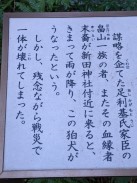 謀略を企てた足利基氏家臣の
畠山一族の者、またその血縁者
末裔が新田神社付近に来ると、
きまって雨が降り、この狛犬が
うなったという。
しかし、残念ながら戦災で
一体が壊れてしまった。